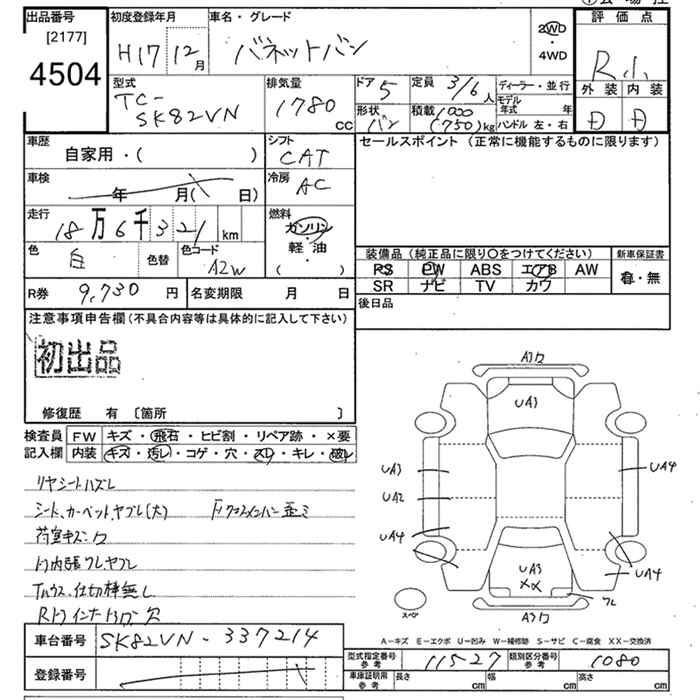 出品番号
[2177]
4504
初度登録年月
H17 12月
車名・グレード
バネットバン
2WD
・
4WD
評価点
R 小
外装 内装
D D
型式
TC-
SK82VN
排気量
1780
cc
ドア 5
定員 3/6 人
ディーラー・並行
モデル年式 年
ハンドル 左・右
形状
バン
積載 1000
(750) kg
車歴
自家用・( )
シフト
CAT
車検
年 月( 日)
冷房
AC
走行
18万6千321 km
燃料
ガソリン
軽・油
( )
色
白
色替
色コード
A2W
R券 9,730 円
名変期限 月 日
セールスポイント (正常に機能するものに限ります)
装備品 (純正品に限り〇をつけてください)
新車保証書
PS PW ABS エアB AW
有・無
SR ナビ TV カワ
後日品
注意事項申告欄 (不具合内容等は具体的に記入して下さい)
初出品
修復歴 有 〔箇所 〕
検査員 FW キズ・飛石・ヒビ割・リペア跡・×要
記入欄 内装 キズ・汚レ・コゲ・穴・スレ・キレ・破レ
リヤシートハズレ
シート、カーペットヤブレ(大) Fクロスメンバー歪ミ
荷室キズ
内張ワレヤブレ
仕切棒無し
穴
A3
UA3
UA3
UA2
UA4
UA4
UA4
UA3
XX
ワレ
スペア
A3
A-キズ E-エクボ U-凹み W-補修跡 S-サビ C-腐食 XX-交換済
車台番号 SK82VN-337214
登録番号
型式指定番号
参考
11527
類別区分番号
参考
1080
車庫証明用
参考
長さ cm
幅 cm
高さ cm